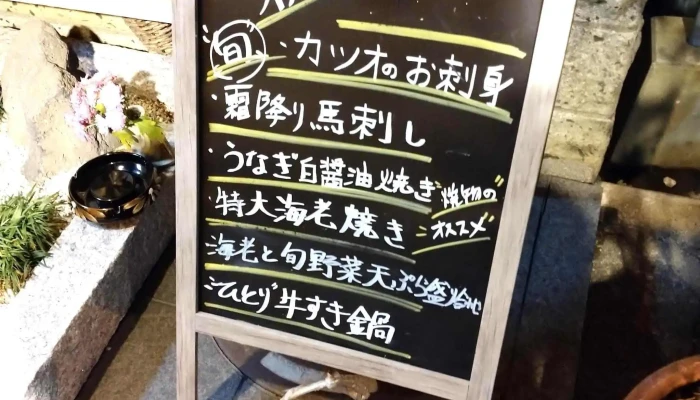 旬・カツオのお刺身
・霜降り馬刺し
・うなぎ白醤油焼き
焼物の
オススメ
・特大海老焼き
海老と旬野菜天ぷら盛合せ
ひとり牛すき鍋